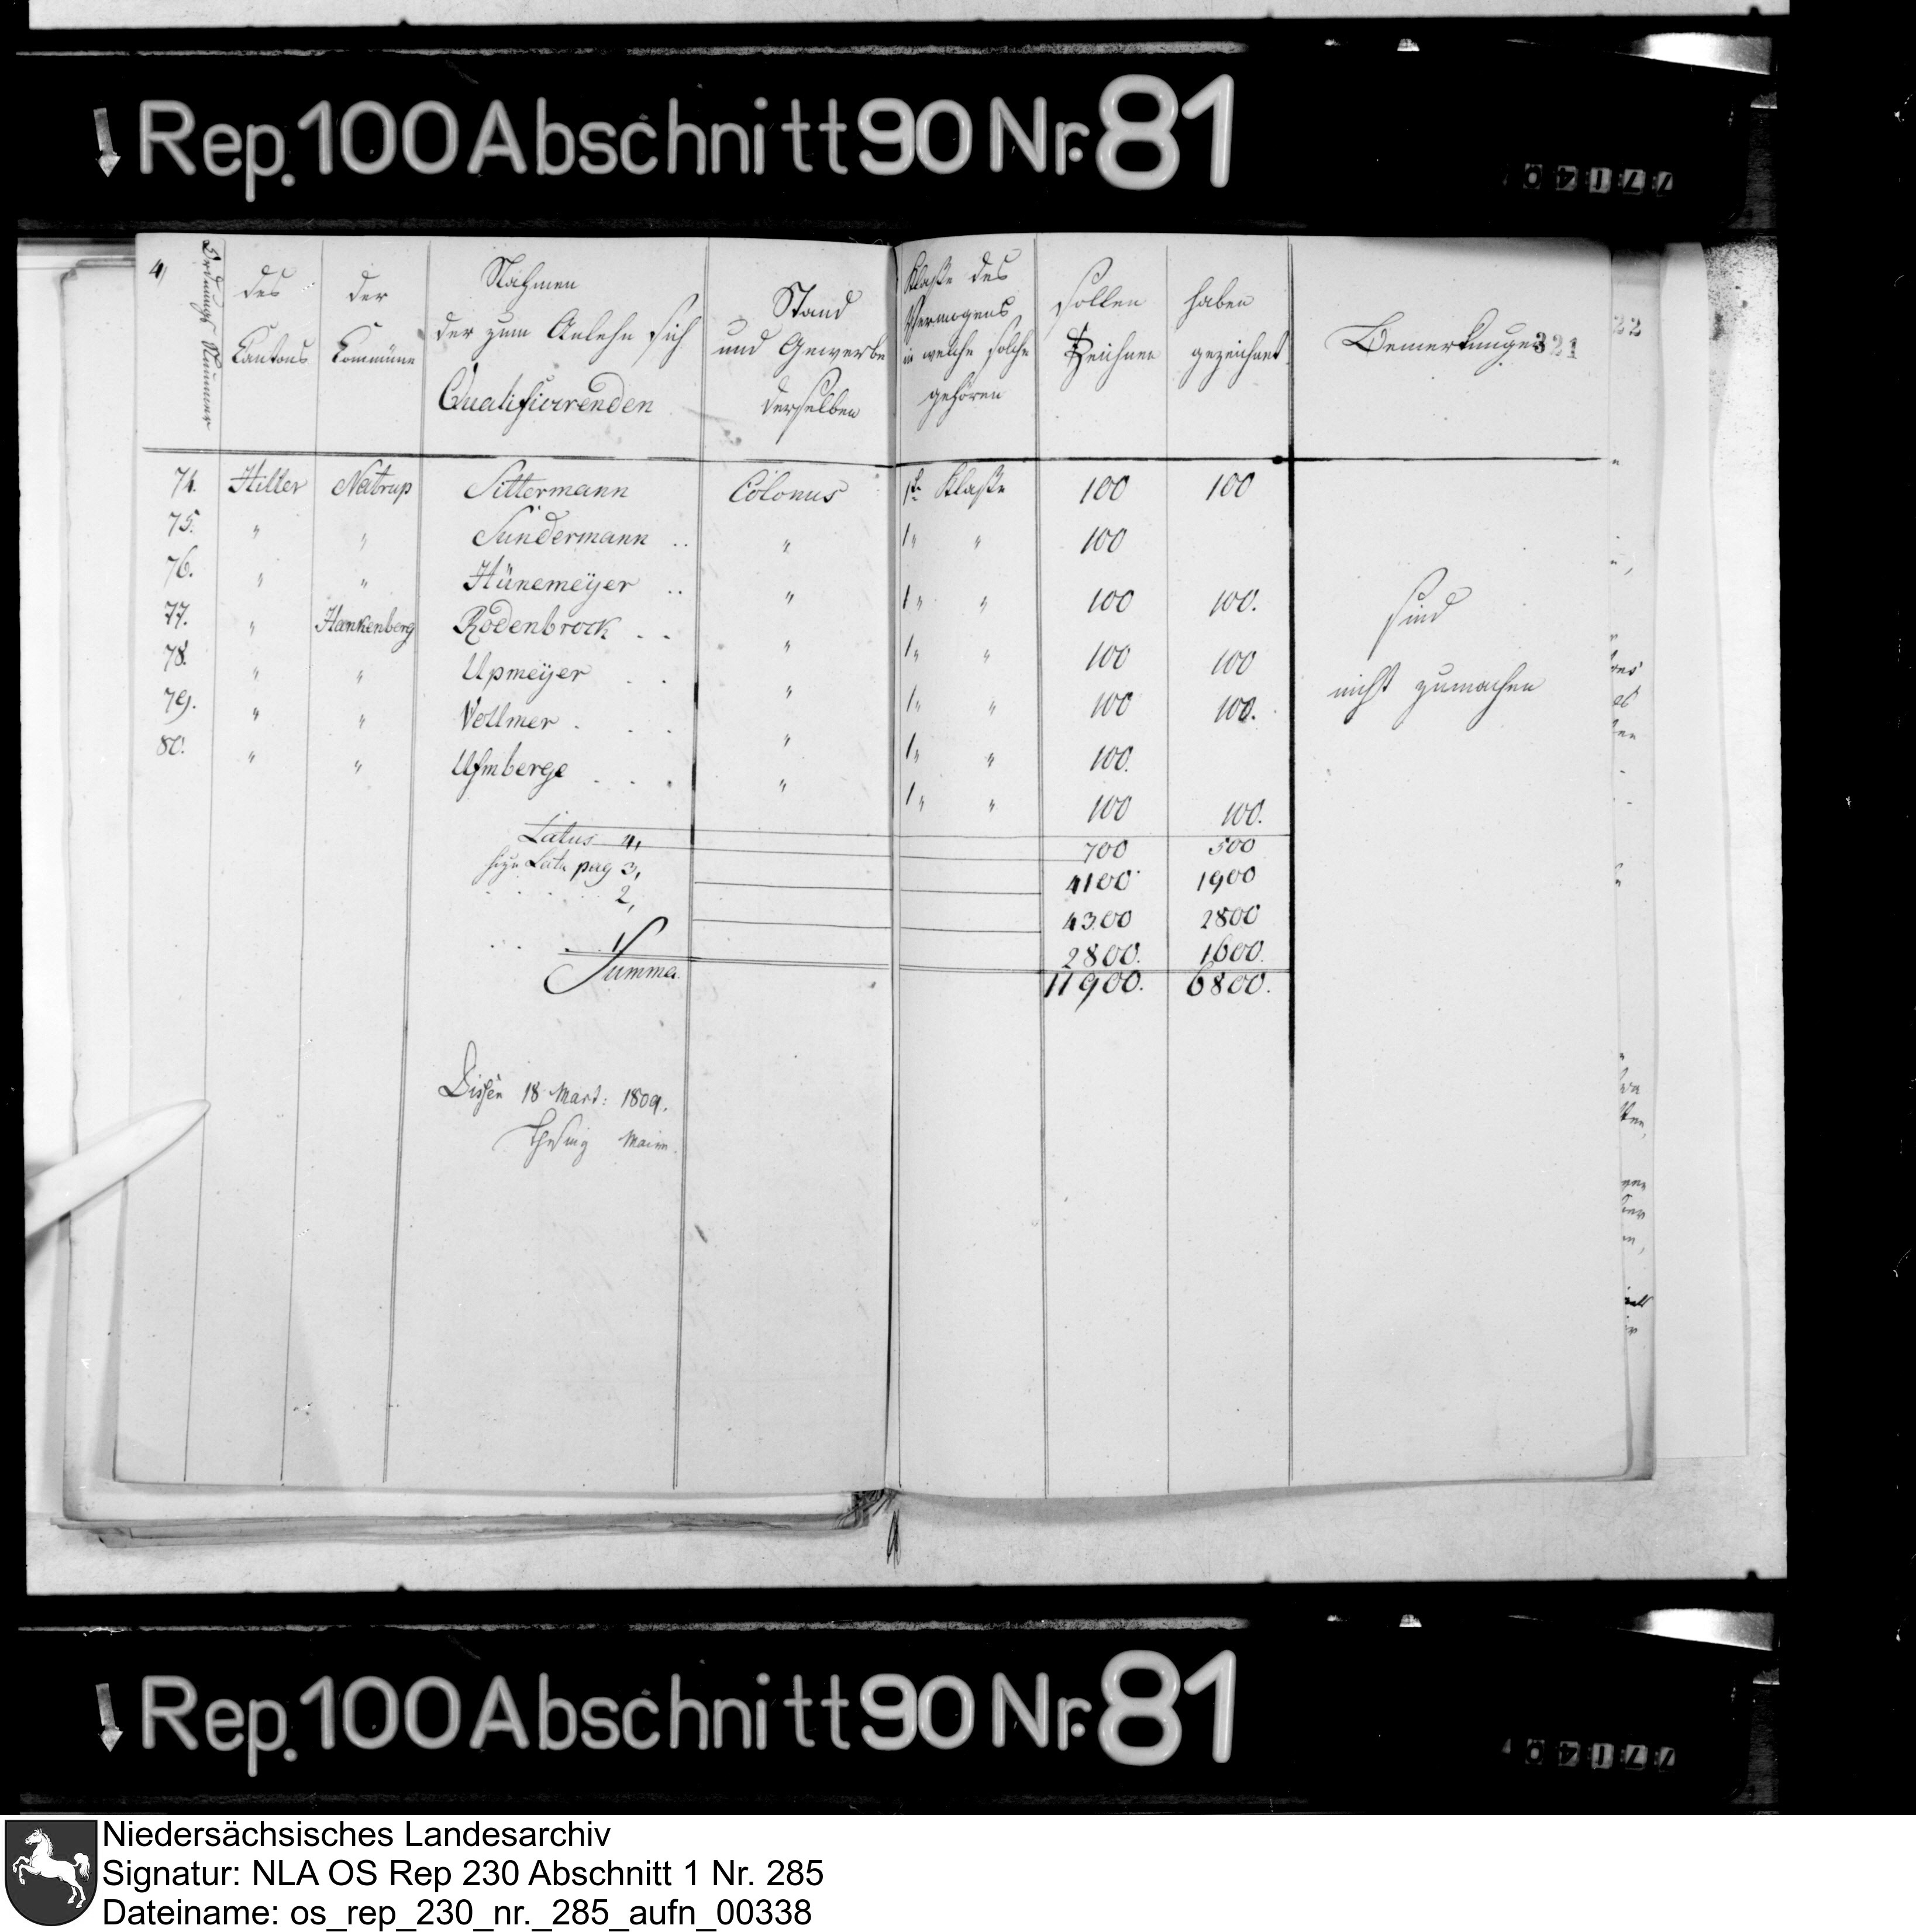 Rep. 100 Abschnitt 90 Nr. 81
4,
Ordnungs Nummer
des Cantons
der Commüne
Nahmen
der zum Anlehn sich
Qualifizirenden
Stand
und Gewerbe
derselben
Klaße des
Vermögens
in welche solche
gehören
sollen
Zeichnen
haben
gezeichnet
Bemerkungen
321
22
74. Hilter Natrup Sittermann Colonus 1te Klaße 100 100
75. " " Sundermann .. " 1" " 100
76. " " Hünemeÿer .. " 1" " 100 100.
77. " Hankenberg Rodenbrock . . " 1" " 100 100
78. " " Upmeÿer . . " 1" " 100 100.
79. " " Vollmer . . . " 1" " 100.
80. " " Ufmberge . . . " 1" " 100 100.
sind
nicht zumachen
Latus 4, 700 500
hizu Latu pag 3, 4100 1900
2, 4300 2800
1 2800. 1600.
Summa 11900. 6800.
Dissen 18 Mart: 1809.
Maire
Rep. 100 Abschnitt 90 Nr. 81
Niedersächsisches Landesarchiv
Signatur: NLA OS Rep 230 Abschnitt 1 Nr. 285
Dateiname: os_rep_230_nr._285_aufn_00338